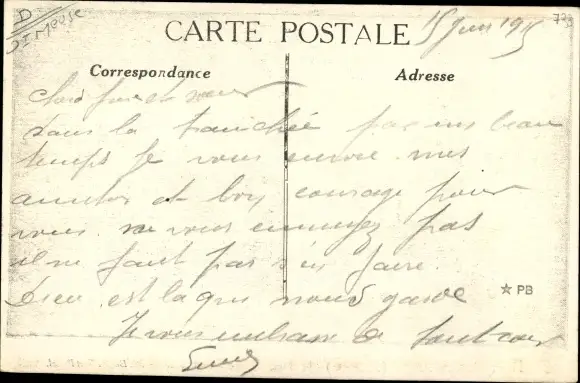 D
55 Meuse
CARTE POSTALE
15 Juin 1915
Correspondance
Adresse
cher frere et soeur
dans la tranchée par un beau
temps je vous envoie mes
amities et bon courage pour
vous ne vous ennuyez pas
il ne faut pas s'en faire.
Dieu est la qui nous garde
PB
Je vous embrasse de tout coeur